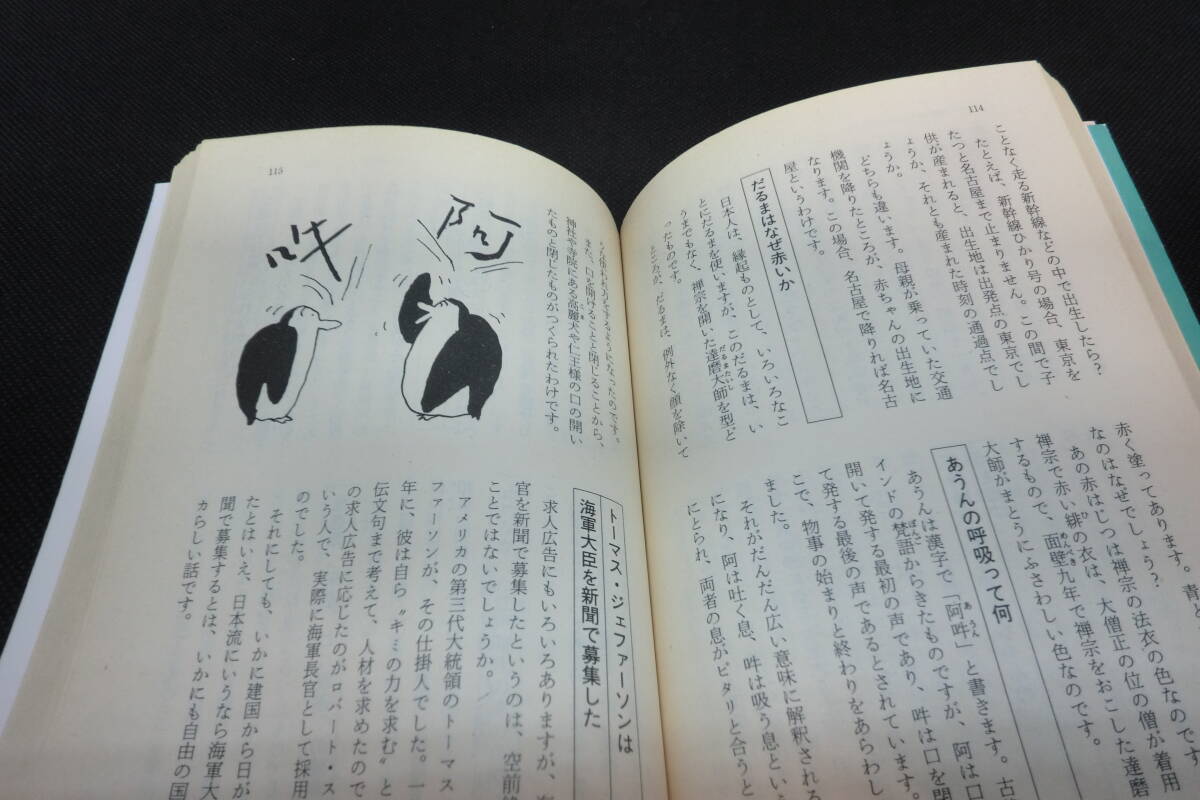 114
ことなく走る新幹線などの中で出生したら?
たとえば、新幹線ひかり号の場合、東京を
たつと名古屋まで止まりません。この間で子
供が産まれると、出生地は出発点の東京でし
ょうか、それとも産まれた時刻の通過点でし
ょうか。
どちらも違います。母親が乗っていた交通
機関を降りたところが、赤ちゃんの出生地に
なります。この場合、名古屋で降りれば名古
屋というわけです。
だるまはなぜ赤いか
日本人は、縁起ものとして、いろいろなこ
とにだるまを使いますが、このだるまは、い
うまでもなく、禅宗を開いた達磨大師を型ど
ったものです。
ところが、だるまは、例外なく顔を除いて
赤く塗ってあります。青
なのはなぜでしょう?
あの赤はじつは禅宗の法衣の色なのです
禅宗で赤い緋の衣は、大僧正の位の僧が着用
するもので、面壁九年で禅宗をおこした達磨
大師がまとうにふさわしい色なのです。
あうんの呼吸って何
あうんは漢字で「阿吽」と書きます。古
インドの梵語からきたものですが、阿は口
開いて発する最初の声であり、吽は口を閉
て発する最後の声であるとされています。
こで、物事の始まりと終わりをあらわし
ました。
それがだんだん広い意味に解釈される
になり、阿は吐く息、吽は吸う息という
にとられ、両者の息がピタリと合うと
115
阿
吽
うな使われ方をするようになったのです。
また、口を開けることと閉じることから、
神社や寺院にある高麗犬や仁王様の口の開い
たものと閉じたものがつくられたわけです。
トーマス・ジェファーソンは
海軍大臣を新聞で募集した
求人広告にもいろいろありますが、海
官を新聞で募集したというのは、空前
ことではないでしょうか。
アメリカの第三代大統領のトーマス
ファーソンが、その仕掛人でした。一
年に、彼は自ら〝キミの力を求む〟と
伝文句まで考えて、人材を求めたので
の求人広告に応じたのがロバート・ス
いう人で、実際に海軍長官として採用
のでした。
それにしても、いかに建国から日が
たとはいえ、日本流にいうなら海軍大
聞で募集するとは、いかにも自由の国
カらしい話です。